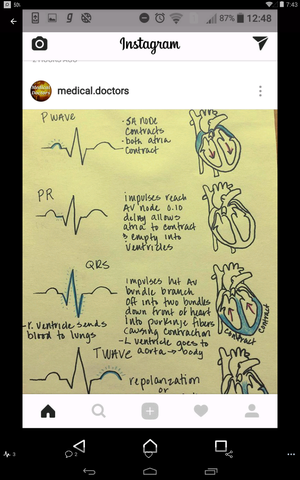 50%
7:43
87% 12:48
Instagram
2 HOURS AGO
medical.doctors
P WAVE
· SA NODE
contracts
· both atria
contract
PR
impulses reach
AV node 0.10
delay allows
atria to contract
& empty into
ventricles
QRS
impulses hit AV
bundle branch
off into two bundles
down front of heart
into purkinje fibers
causing contraction
- L ventricle goes to
aorta → body
- r. ventricle sends
blood to lungs
contract
contract
T WAVE
repolarization or
3
2
3